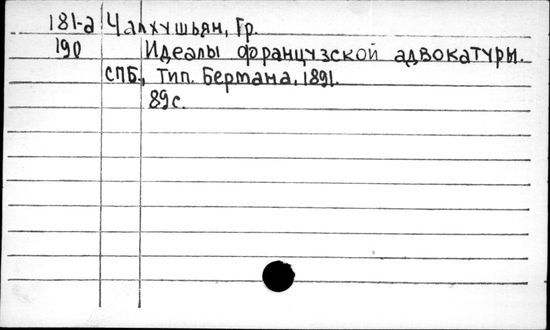 181-а Чалхушьян, Гр.
190 Идеалы французской адвокатуры.
СПБ., Тип. Бермана, 1891.
89с.